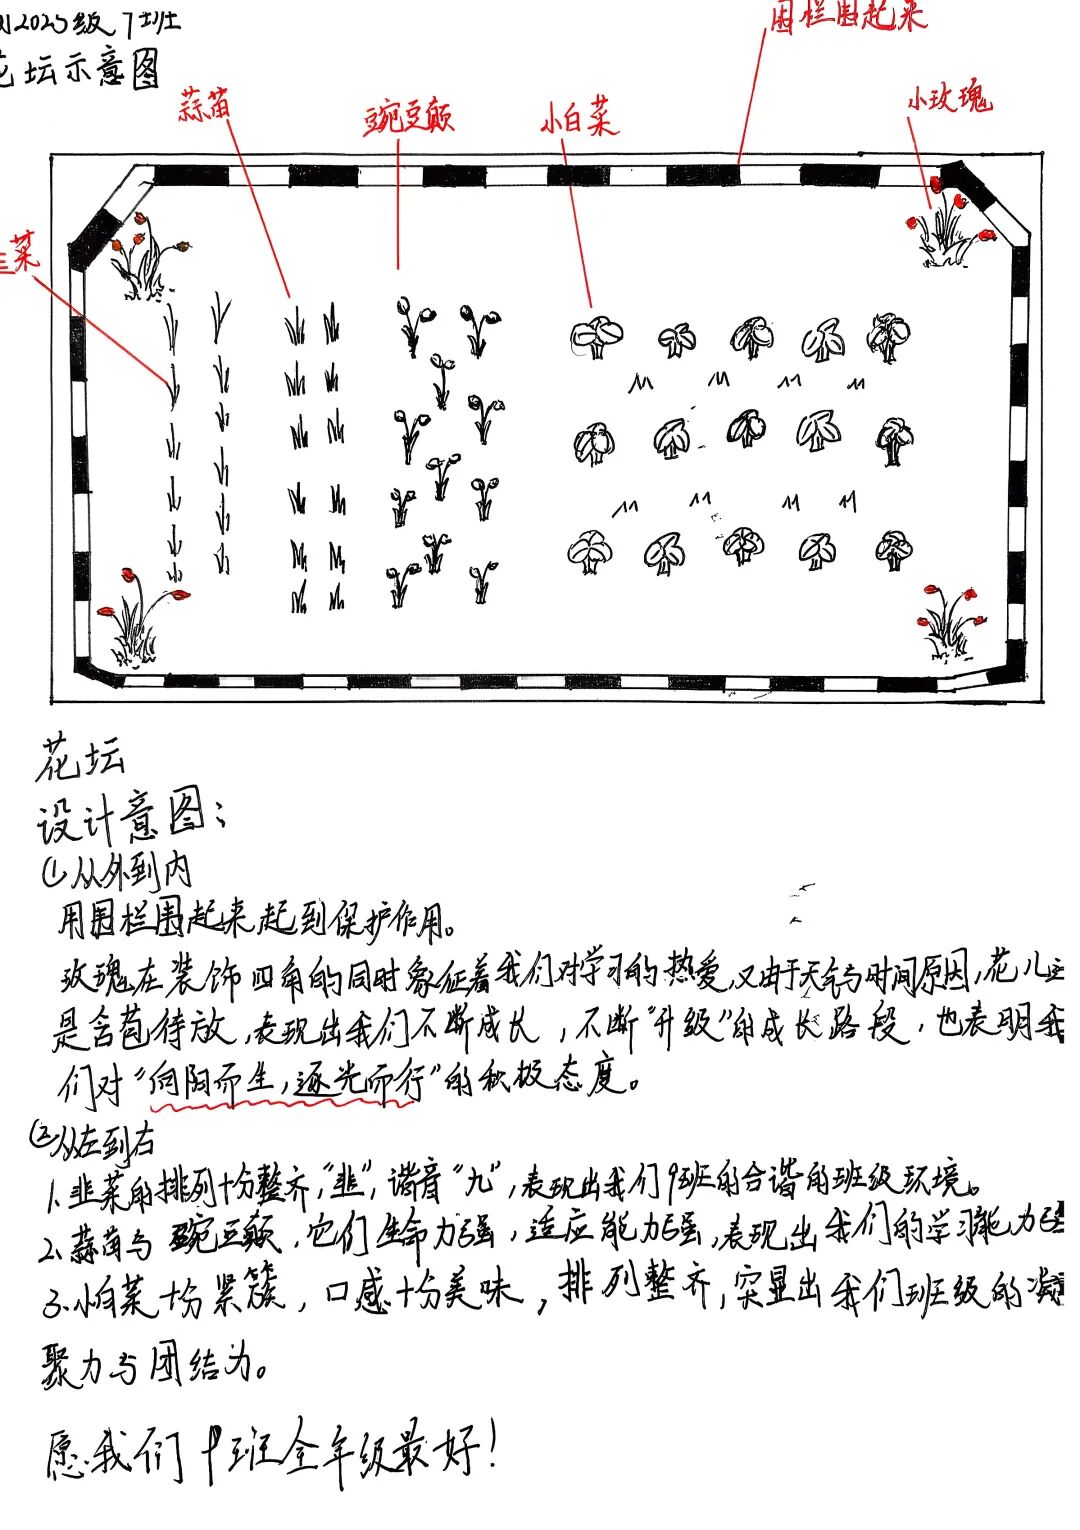 2023级9班
花坛示意图
围栏围起来
蒜苗
豌豆颠
小白菜
小玫瑰
菜
花坛
设计意图：
①从外到内
用围栏围起来起到保护作用。
玫瑰在装饰四角的同时象征着我们对学习的热爱,又由于天气与时间原因,花儿
是含苞待放,表现出我们不断成长，不断“升级”的成长路段，也表明我
们对“向阳而生,逐光而行”的积极态度。
②从左到右
1.韭菜的排列十分整齐,“韭”,谐音“九”,表现出我们9班的合谐的班级环境。
2.蒜苗与豌豆颠,它们生命力强,适应能力强,表现出我们的学习能力强
3.小白菜十分紧簇，口感十分美味，排列整齐,突显出我们班级的凝
聚力与团结力。
愿我们9班全年级最好!